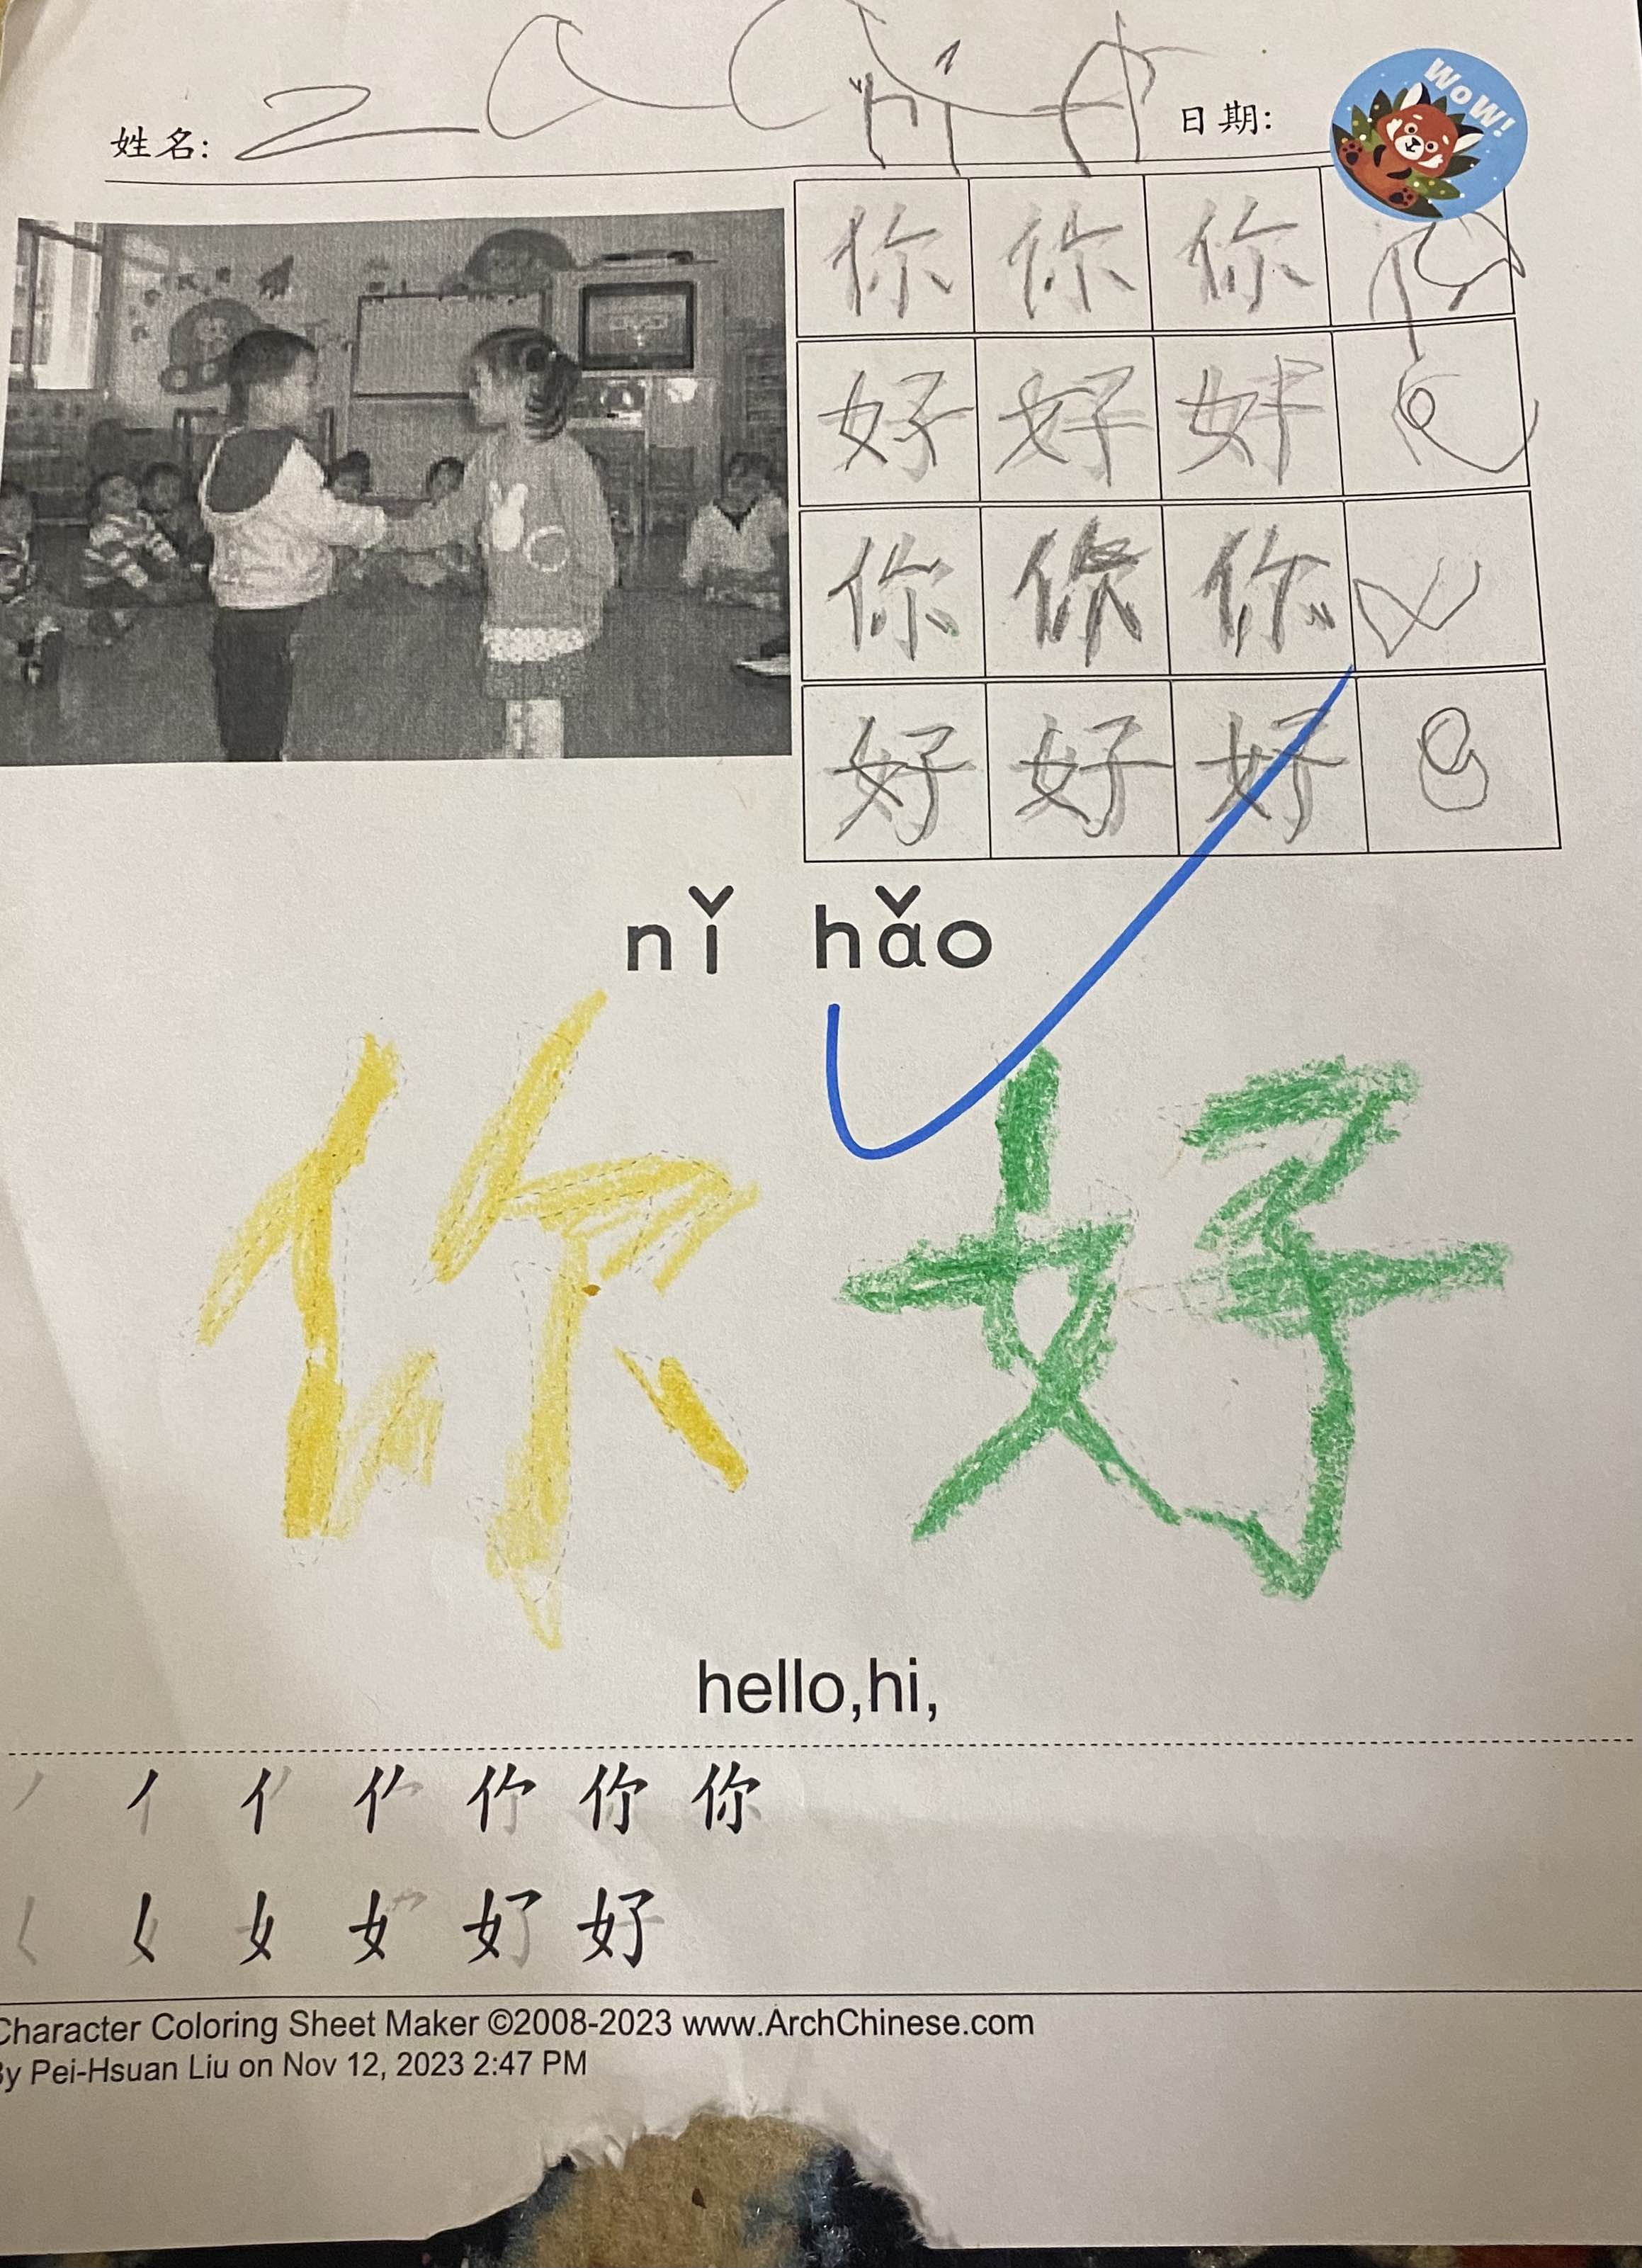 姓名:
日期:
WoW!
你 你 你
好 好 好
你 你 你
好 好 好
nǐ hǎo
你好
hello,hi,
丿 亻 你
𡿨 女 好
Character Coloring Sheet Maker ©2008-2023 www.ArchChinese.com
By Pei-Hsuan Liu on Nov 12, 2023 2:47 PM